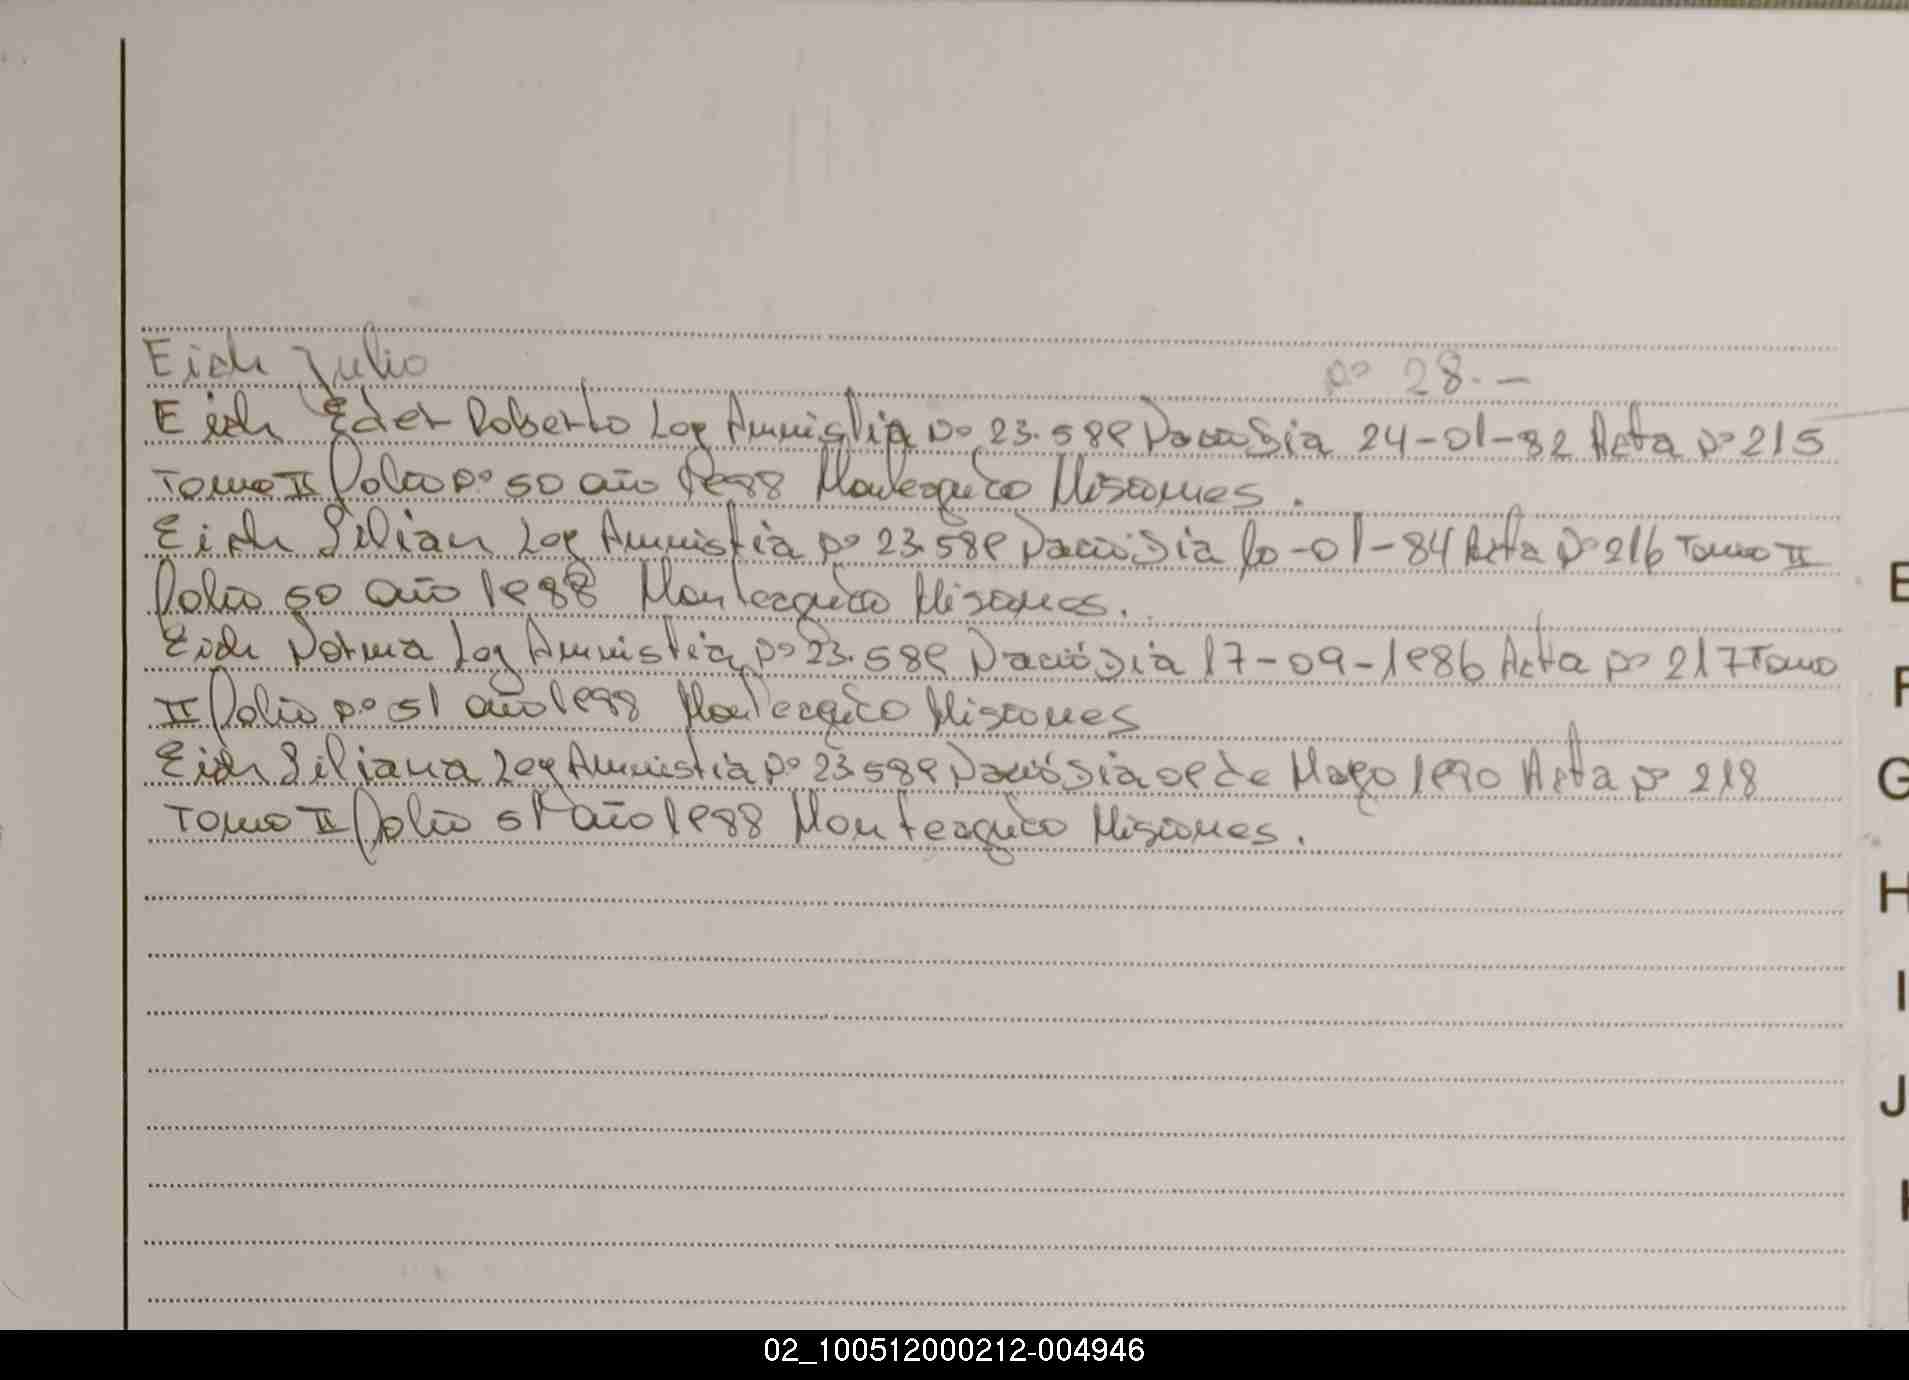 Eich Julio nº 28.-
Eich Eder Roberto Ley Amnistia nº 23.589 Nació Dia 24-01-82 Acta nº 215
Tomo II Folio nº 50 año 1988 Montecarlo Misiones.
Eich Lilian Ley Amnistia nº 23.589 Nació Dia 10-01-84 Acta nº 216 Tomo II
Folio 50 año 1988 Montecarlo Misiones.
Eich Norma Ley Amnistia nº 23.589 Nació Dia 17-09-1986 Acta nº 217 Tomo
II Folio nº 51 año 1988 Montecarlo Misiones
Eich Liliana Ley Amnistia nº 23589 Nació Dia 09 de Mayo 1990 Acta nº 218
Tomo II Folio 51 año 1988 Montecarlo Misiones.
E
F
G
H
I
J
02_100512000212-004946